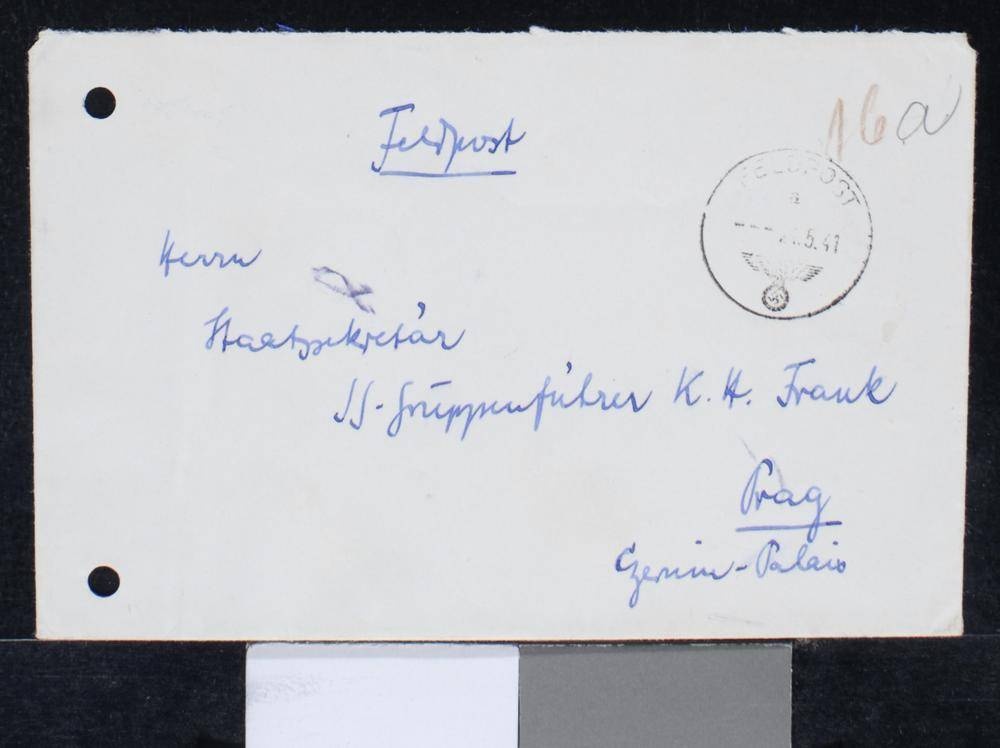 16 a
Feldpost
FELDPOST
a
.5.41
Herrn
Staatssekretär
SS-Gruppenführer K. H. Frank
Prag
Czernin-Palais